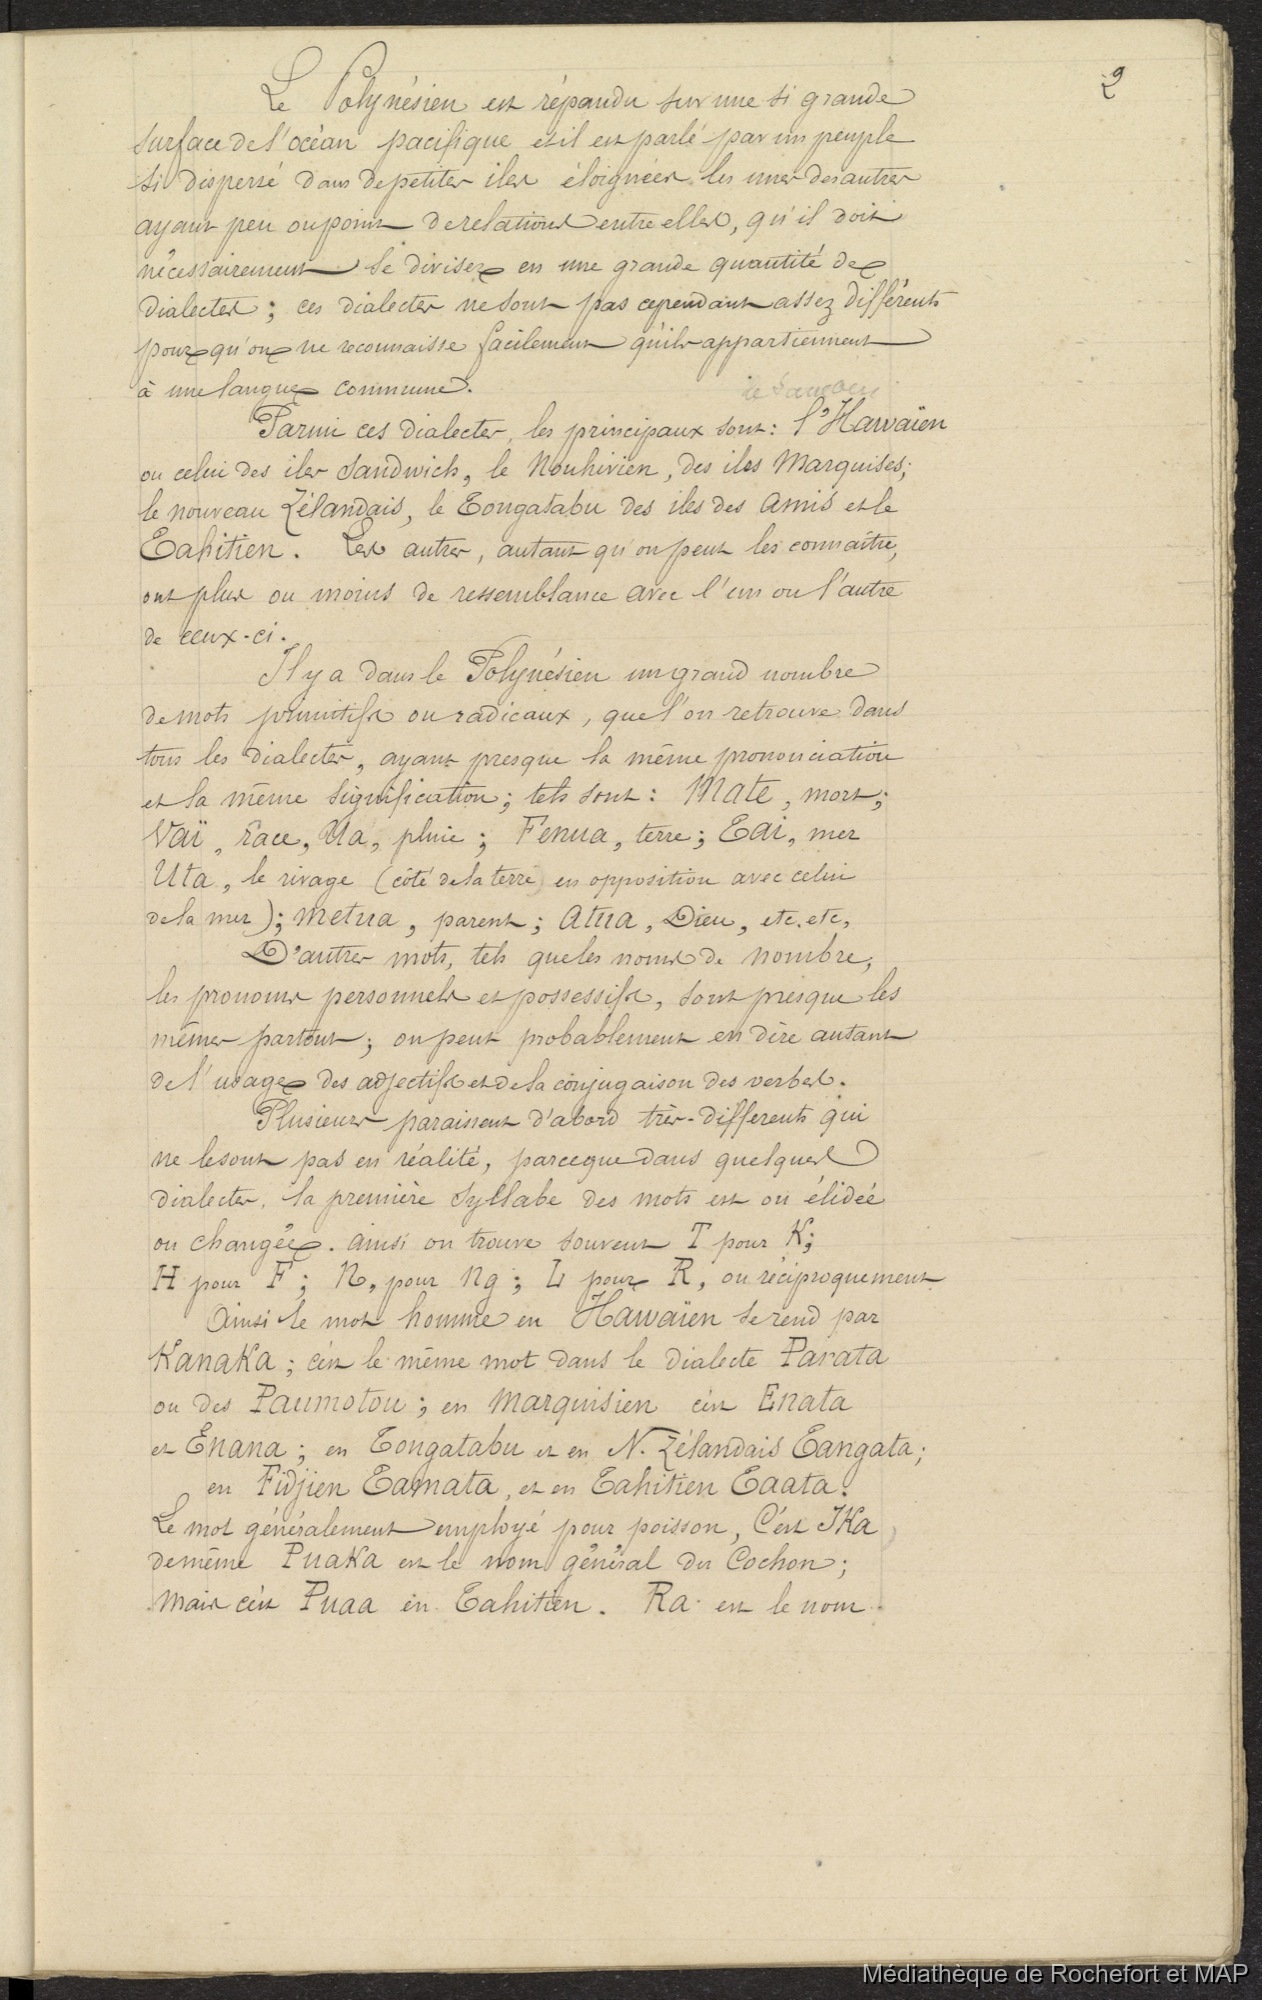 2
Le Polynésien est répandu sur une si grande
surface de l'océan pacifique et il est parlé par un peuple
si dispersé dans de petites iles éloignées les unes des autres
ayant peu ou point de relations entre elles, qu'il doit
nécessairement se diviser en une grande quantité de
dialectes ; ces dialectes ne sont pas cependant assez différents
pour qu'on ne reconnaisse facilement qu'ils appartiennent
à une langue commune.
Parmi ces dialectes, les principaux sont : l'Hawaïen
ou celui des iles Sandwich, le Nouhivien, des iles Marquises ;
le nouveau Zélandais, le Tongatabu des iles des Amis et le
Tahitien. Les autres, autant qu'on peut les connaître,
ont plus ou moins de ressemblance avec l'un ou l'autre
de ceux-ci.
Il y a dans le Polynésien un grand nombre
de mots primitifs ou radicaux, que l'on retrouve dans
tous les dialectes, ayant presque la même prononciation
et la même signification ; tels sont : Mate, mort ;
Vaï, race, Ua, pluie ; Fenua, terre ; Tai, mer
Uta, le rivage (côté de la terre) en opposition avec celui
de la mer) ; metua, parent ; Atua, Dieu, etc. etc,
D'autres mots, tels que les noms de nombre,
les pronoms personnels et possessifs, sont presque les
mêmes partout ; on peut probablement en dire autant
de l'usage des adjectifs et de la conjugaison des verbes.
Plusieurs paraissent d'abord très-differents qui
ne le sont pas en réalité, parceque dans quelques
dialectes, la première syllabe des mots est ou élidée
ou changée. Ainsi on trouve souvent T pour K ;
H pour F ; N, pour Ng ; L pour R, ou réciproquement
Ainsi le mot homme en Hawaïen se rend par
Kanaka ; c'est le même mot dans le dialecte Parata
ou des Paumotou ; en Marquisien c'est Enata
et Enana ; en Tongatabu et en N. Zélandais Tangata ;
en Fidjien Tamata, et en Tahitien Taata.
Le mot généralement employé pour poisson, C'est Ika
de même Puaka est le nom général du Cochon ;
Mais c'est Puaa en Tahitien. Ra est le nom
Médiathèque de Rochefort et MAP